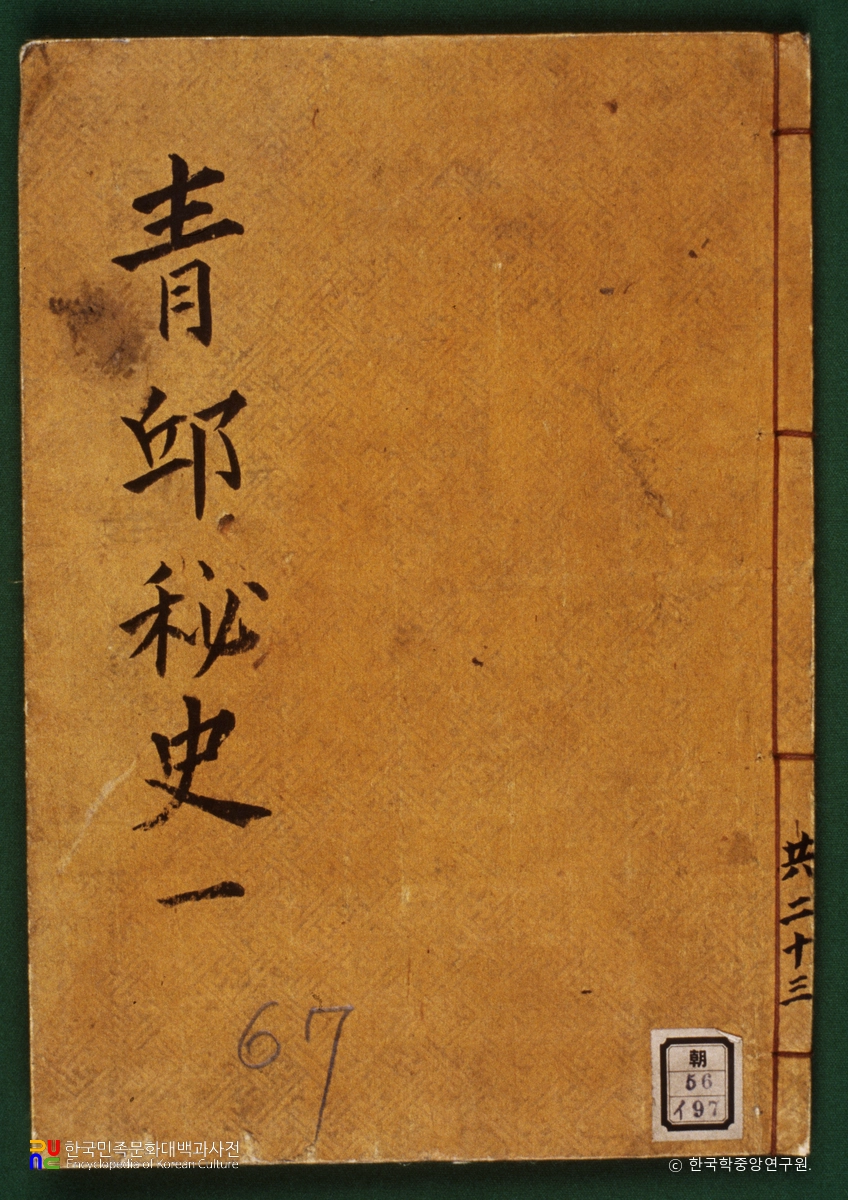 青邱秘史一
共二十三
67
朝
56
イ97
한국민족문화대백과사전
Encyclopedia of Korean Culture
© 한국학중앙연구원.